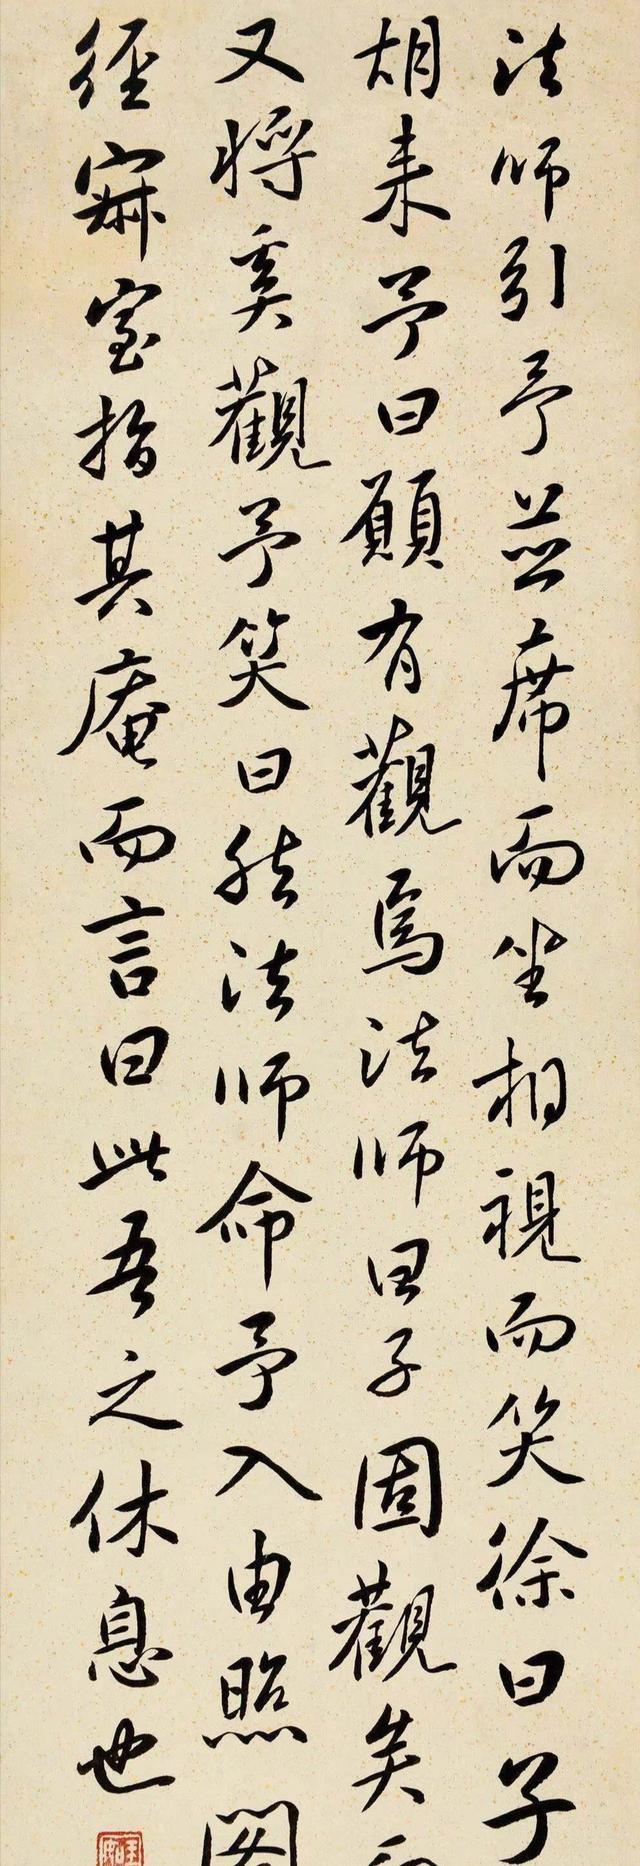 法師引予並席而坐相視而笑徐曰子
胡来予曰願有觀焉法師曰子固觀矣而
又将奚觀予笑曰然法師命予入由照閣
徑寂室指其庵而言曰此吾之休息也